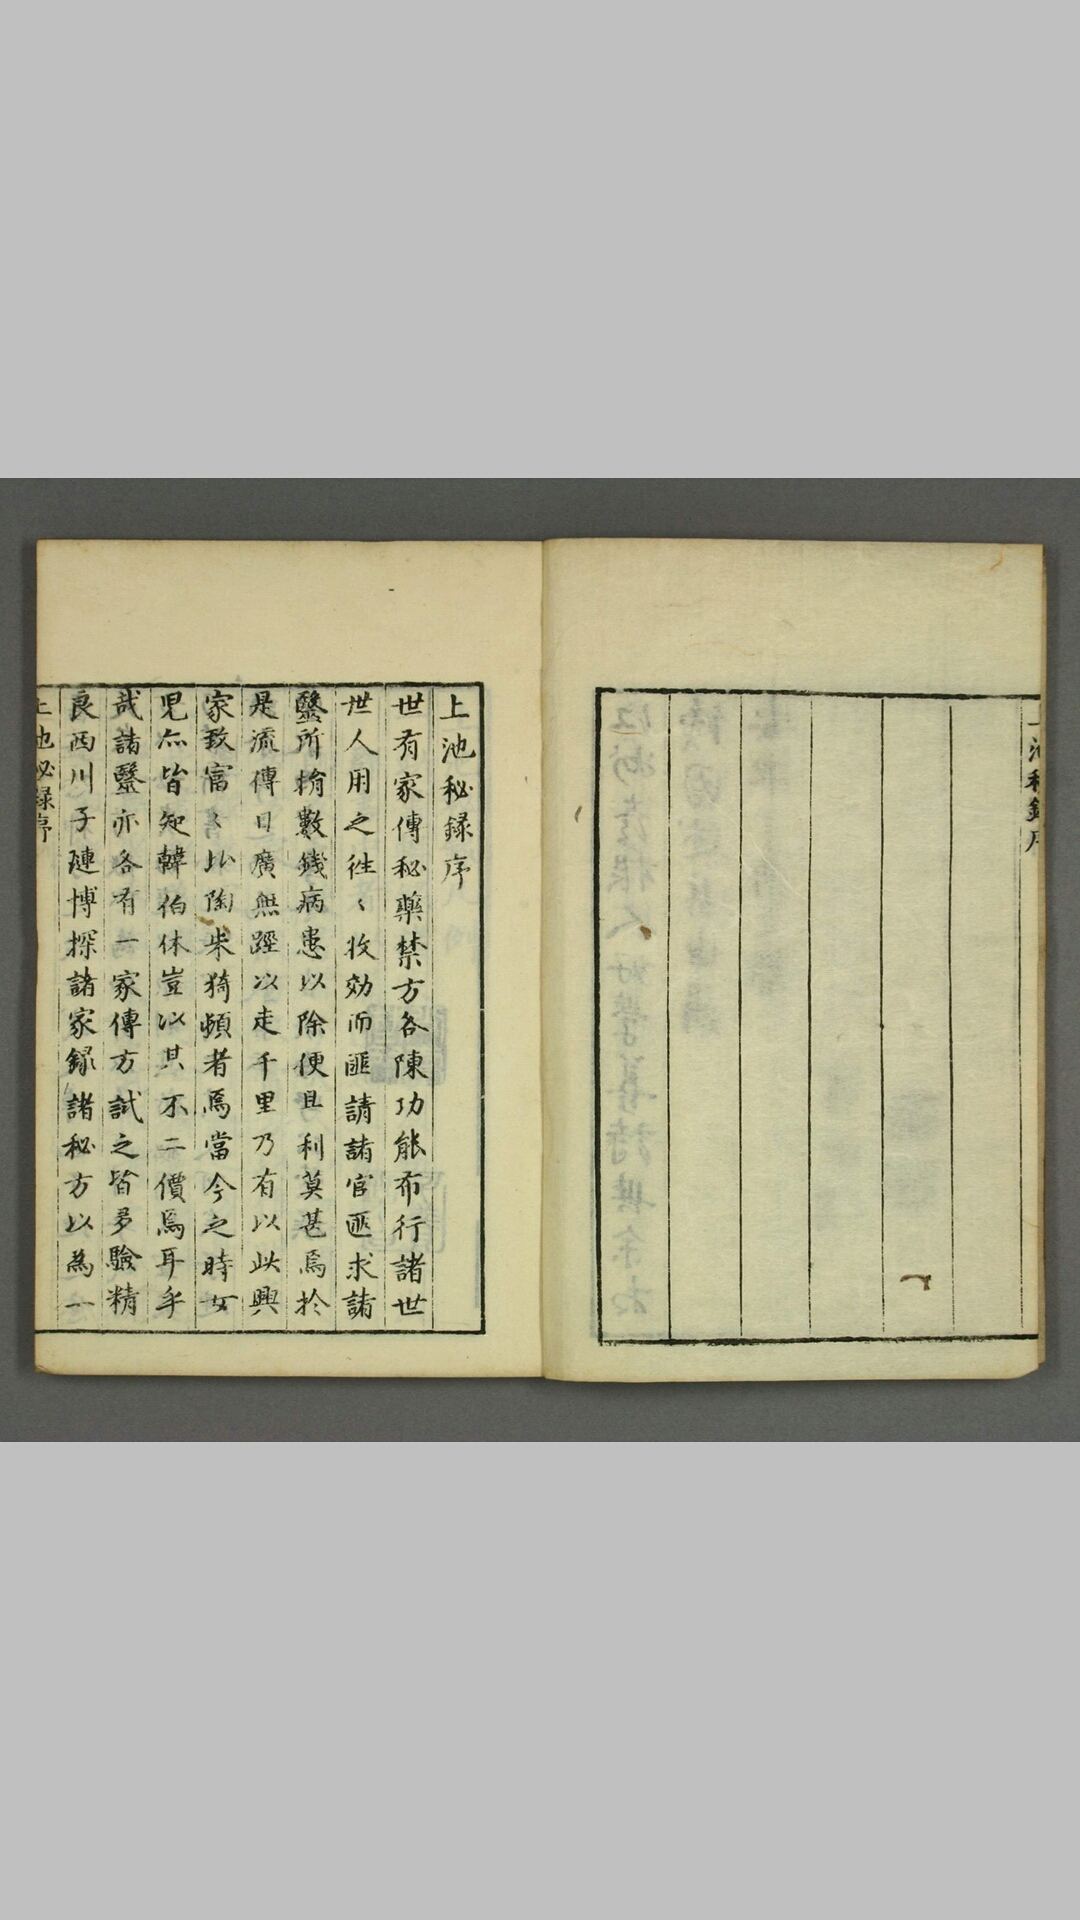 上池秘録序
世有家傳秘藥禁方各陳功能布行諸世
世人用之徃〻收効而匪請諸官匪求諸
毉所捐數錢病患以除便且利莫甚焉於
是流傳日廣無踁以走千里乃有以此興
家致富〻比陶朱猗頓者焉當今之時女
児亦皆知韓伯休豈以其不二價焉耳乎
哉諸毉亦各有一家傳方試之皆多驗精
良西川子璉博探諸家録諸秘方以為一
上池秘録序